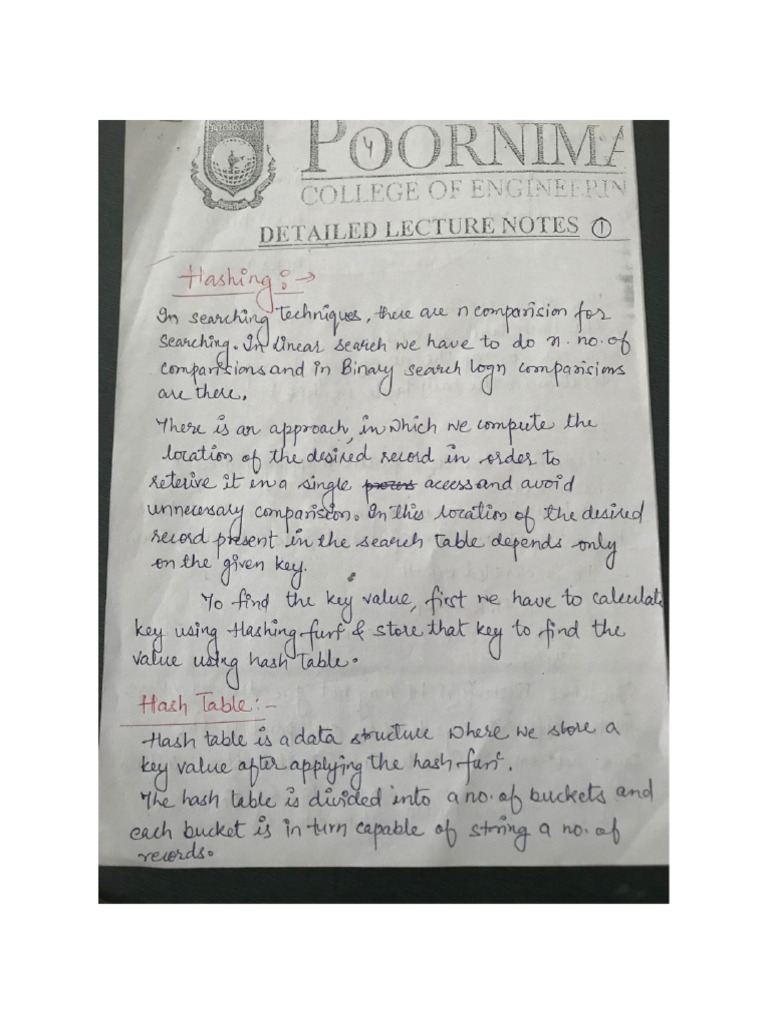 POORNIMA
POORNIMA
4
COLLEGE OF ENGINEERIN
DETAILED LECTURE NOTES 1
Hashing :→
In searching techniques, there are n comparision for
searching. In linear search we have to do n. no. of
comparisions and in Binary search logn comparisions
are there.
There is an approach, in which we compute the
location of the desired record in order to
reterive it in a single process access and avoid
unnecesary comparision. In this location of the desired
record present in the search table depends only
on the given key.
To find the key value, first we have to calculate
key using Hashing funⁿ & store that key to find the
value using hash table.
Hash Table:-
Hash table is a data structure where we store a
key value after applying the hash funᶜ.
The hash table is divided into a no. of buckets and
each bucket is in turn capable of string a no. of
records.